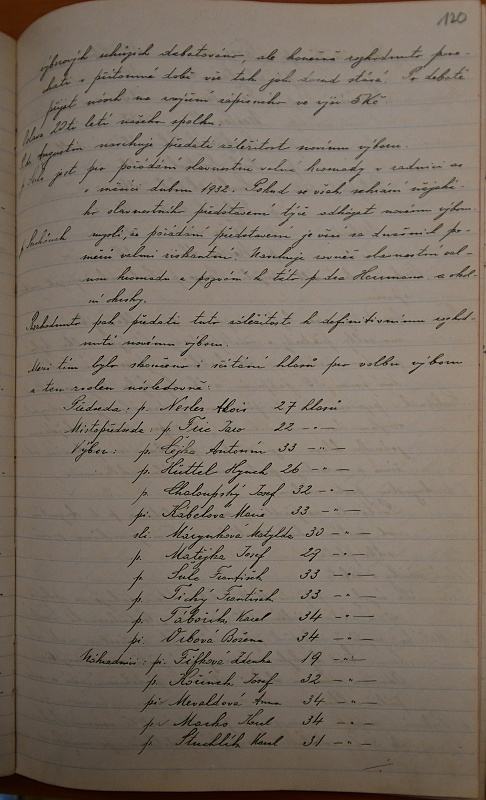 120
výborových schůzích debatováno, ale konečně rozhodnuto pone-
chati v přítomné době vše tak jak dosud stává. Po debatě
přijat návrh na zvýšení zápisného ve výši 5 Kč
Oslava 20ti letí našeho spolku.
p. Augustin navrhuje předati záležitost novému výboru.
p. Šulc jest pro pořádání slavnostní valné hromady v radnici as
v měsíci dubnu 1932. Pokud se však sehrání nějaké-
ho slavnostního představení týče odkázat novému výboru.
p. myslí, že pořádání představení je věcí za dnešních po-
měrů velmi riskantní. Navrhuje rovněž slavnostní val-
nou hromadu a pozvání k této p. dra Herrmanna a okol-
ní kruhy.
Rozhodnuto pak předati tuto záležitost k definitivnímu rozhod-
nutí novému výboru.
Mezi tím bylo skončeno i sčítání hlasů pro volbu výboru
a ten zvolen následovně:
Předseda: p. Nesler Alois 27 hlasů
Místopředseda: p. Fric Jaro 22 -"-
Výbor: p. Čejka Antonín 33 -"-
p. Hüttel Hynek 26 -"-
p. Chaloupský Josef 32 -"-
pí. Kabelová Marie 33 -"-
sl. Matylda 30 -"-
p. Matějka Josef 29 -"-
p. Šulc František 33 -"-
p. Tichý František 33 -"-
p. Tábořík Karel 34 -"-
pí. Vrbová Božena 34 -"-
Náhradníci: pí. Fifková Zdenka 19 -"-
p. Kořínek Josef 32 -"-
pí Mevaldová Anna 34 -"-
p. Macko Karel 34 -"-
p. Stuchlík Karel 31 -"-